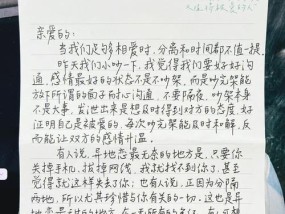 亲爱的:
当我们足够相爱时,分离和时间都不值一提。
昨天我们小吵一下,我觉得我们要好好沟
通,感情最好的状态不是不吵架,而是吵完架能
放下所谓的面子耐心沟通,不要隔夜,吵架本身
不是大事,发泄出来是想及时得到对方的态度,好
证明自己是被爱的,每次吵完架能及时和解,反
而能让双方的感情升温。
有人说,异地恋最无奈的地方是,只要你
关掉手机,拔掉网线,我就找不到你了,甚至
觉得就这样失去了你;也有人说,正因为分隔
两地,所以尤其珍惜与你有关的一切,这也是异